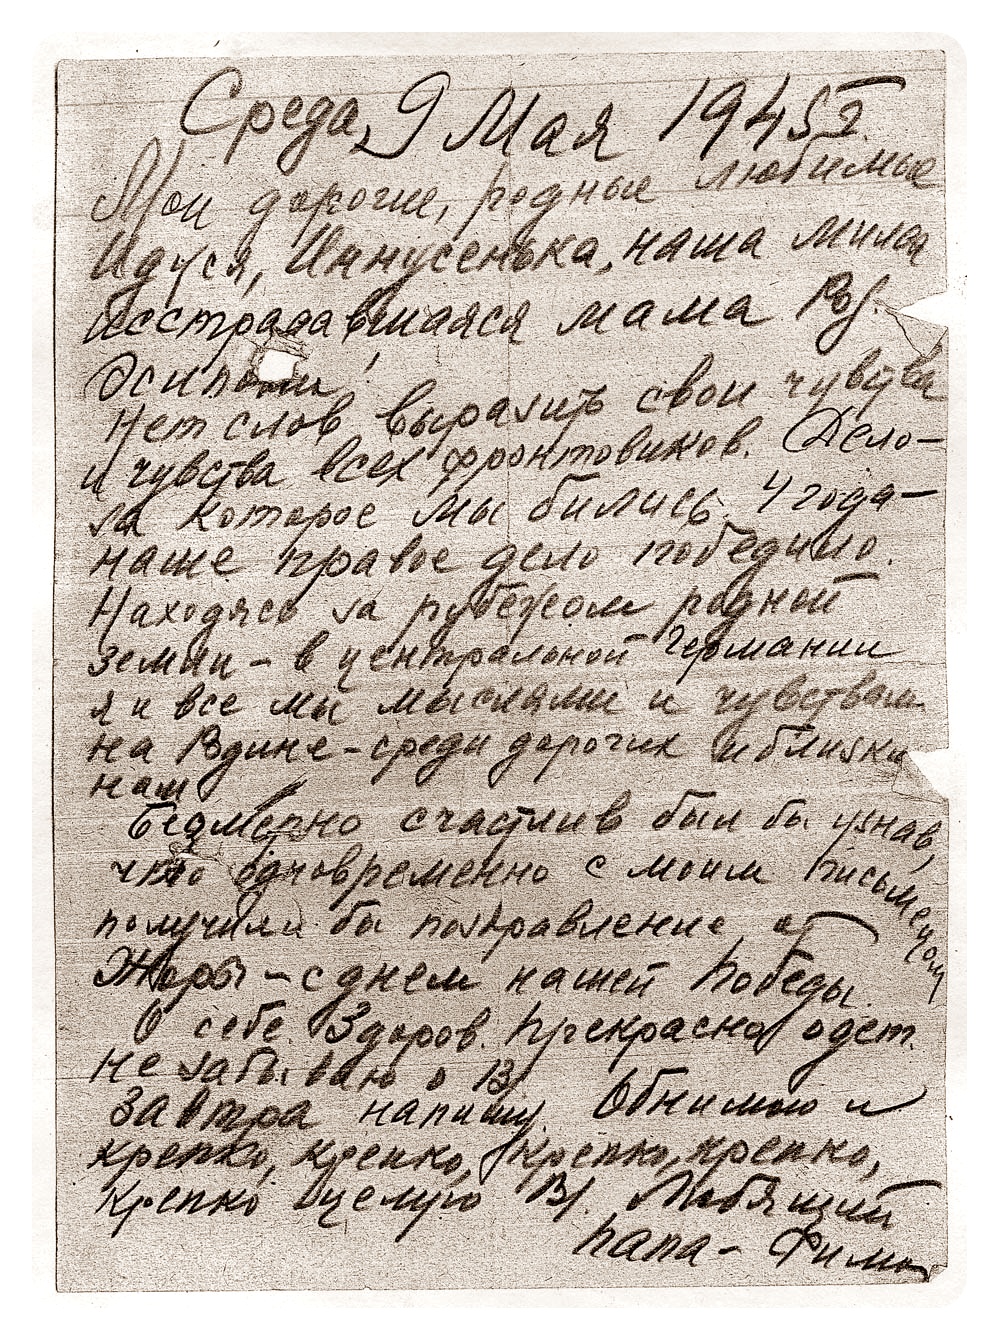 Среда, 9 Мая 1945 г.
Мои дорогие, родные любимые
Идуся, Иннусенька, наша милая
Исстрадавшаяся мама
Нет слов выразить свои чувства
и чувства всех фронтовиков. Дело –
за которое мы бились 4 года –
наше правое дело победило.
Находясь за рубежом родной
земли – в центральной Германии
я и все мы мыслями и чувствами
на Родине – среди дорогих и близких
нам
Безмерно счастлив был бы узнав,
что одновременно с моим письмецом
получили бы поздравление от
Жоры – с днем нашей Победы.
О себе. Здоров. Прекрасно одет.
Не забываю о
Завтра напишу. Обнимаю и
крепко, крепко, крепко, крепко,
крепко целую Вас. Любящий
папа – Фима